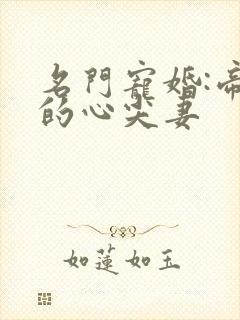 名門寵婚:帝
的心尖妻
如蓮如玉